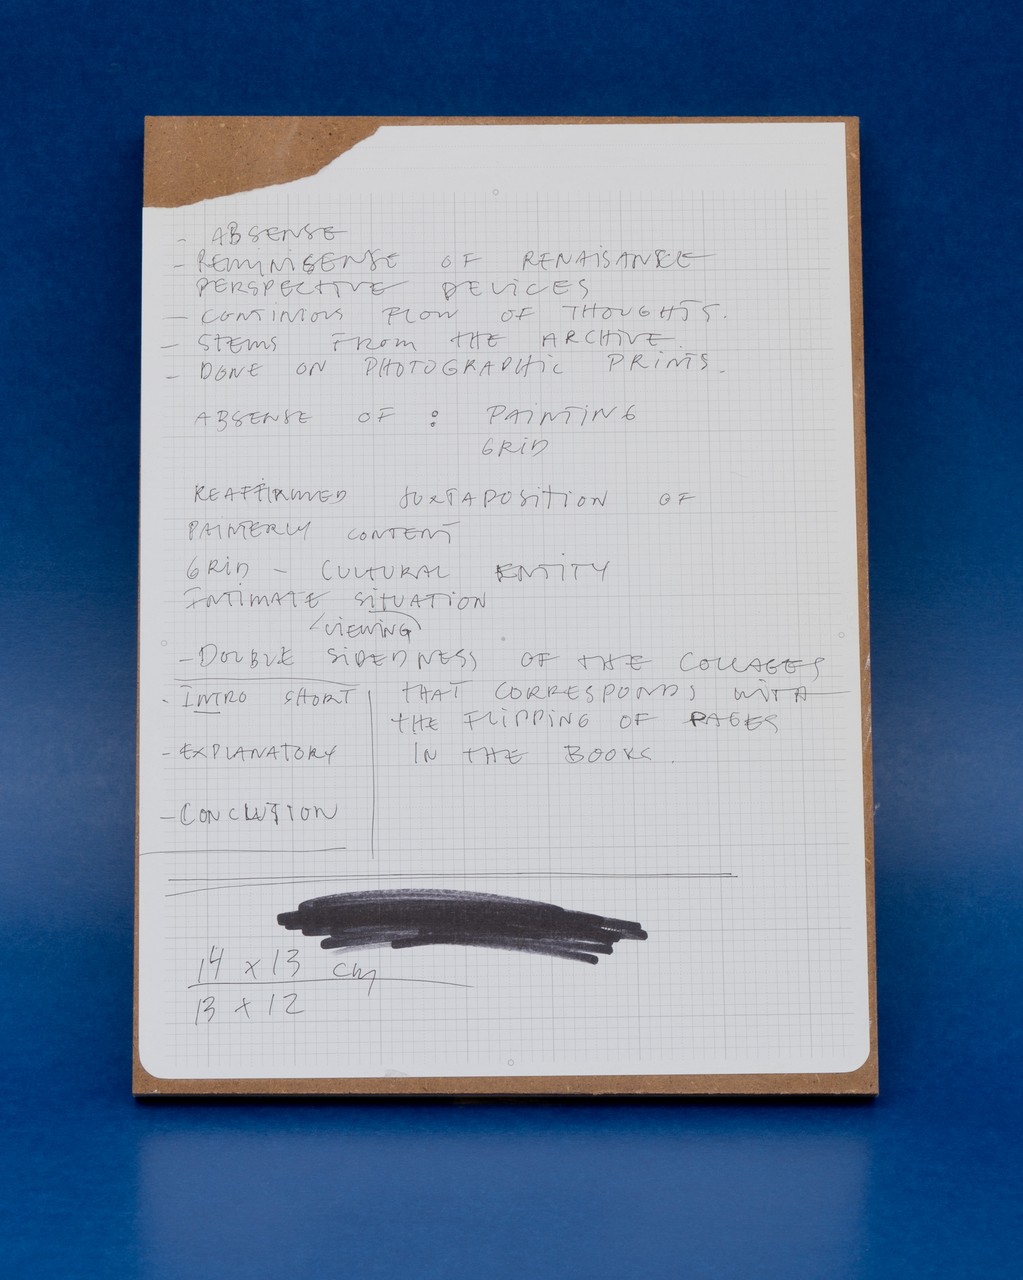 - ABSENSE
- REMINISENSE OF RENAISANSE
PERSPECTIVE DEVICES
- CONTINIOUS FLOW OF THOUGHTS.
- STEMS FROM THE ARCHIVE.
- DONE ON PHOTOGRAPHIC PRINTS.
ABSENSE OF : PAINTING
GRID
REAFFIRMED JUXTAPOSITION OF
PAINTERLY CONTENT
GRID - CULTURAL ENTITY
INTIMATE SITUATION
VIEWING
- DOUBLE SIDEDNESS OF THE COLLAGES
THAT CORRESPONDS WITH
THE FLIPPING OF PAGES
IN THE BOOKS.
- INTRO SHORT
- EXPLANATORY
- CONCLUTION
14 x 13 cm
13 x 12